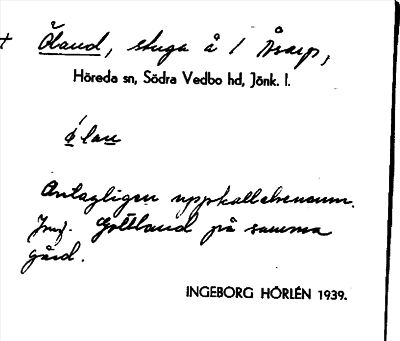 + Öland, stuga å 1 Åsarp,
Höreda sn, Södra Vedbo hd, Jönk. l.
ǿlan
Antagligen uppkallelsenamn.
Jmf. Gottland på samma
gård.
INGEBORG HÖRLÉN 1939.